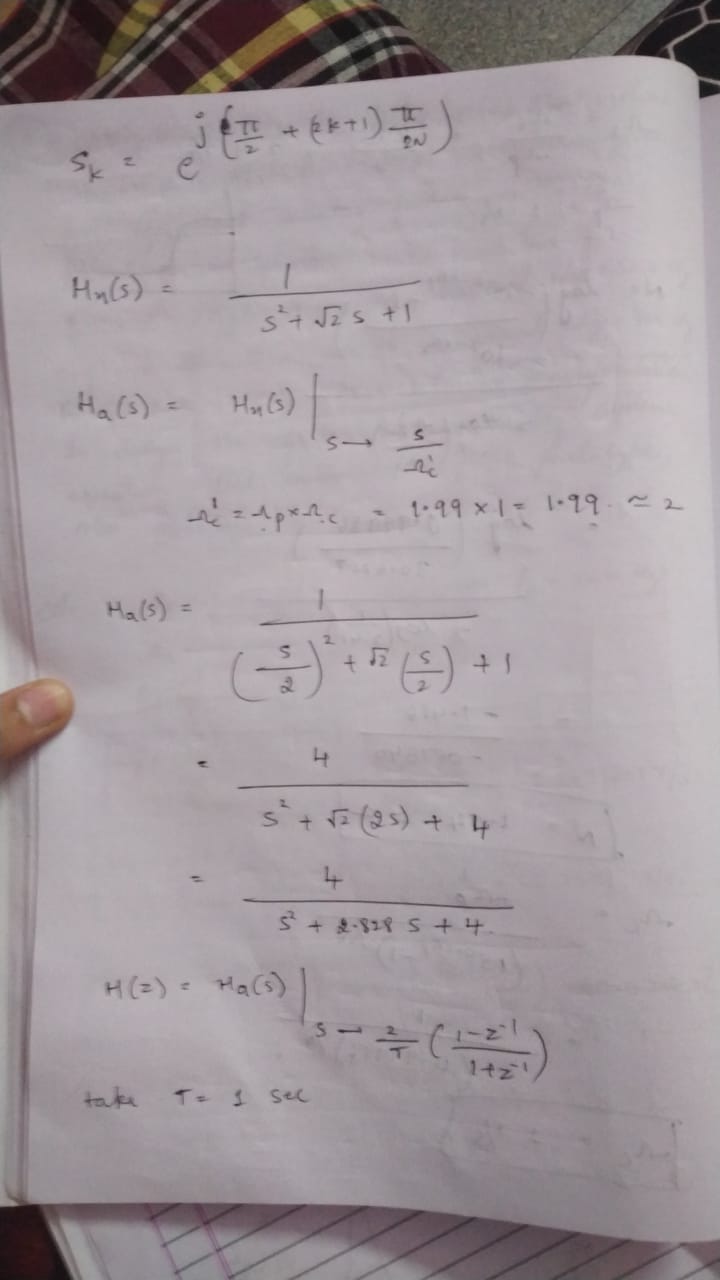 S_k = e^{j(π/2 + (2k+1) π/2N)}
H_n(s) = 1 / (s² + √2 s + 1)
H_a(s) = H_n(s) | s → s/Ω_c'
Ω_c' = Ω_p × Ω_c = 1.99 × 1 = 1.99 ≃ 2
H_a(s) = 1 / ((s/2)² + √2 (s/2) + 1)
= 4 / (s² + √2 (2s) + 4)
= 4 / (s² + 2.828 s + 4)
H(z) = H_a(s) | s → 2/T ((1 - z⁻¹) / (1 + z⁻¹))
take T = 1 sec